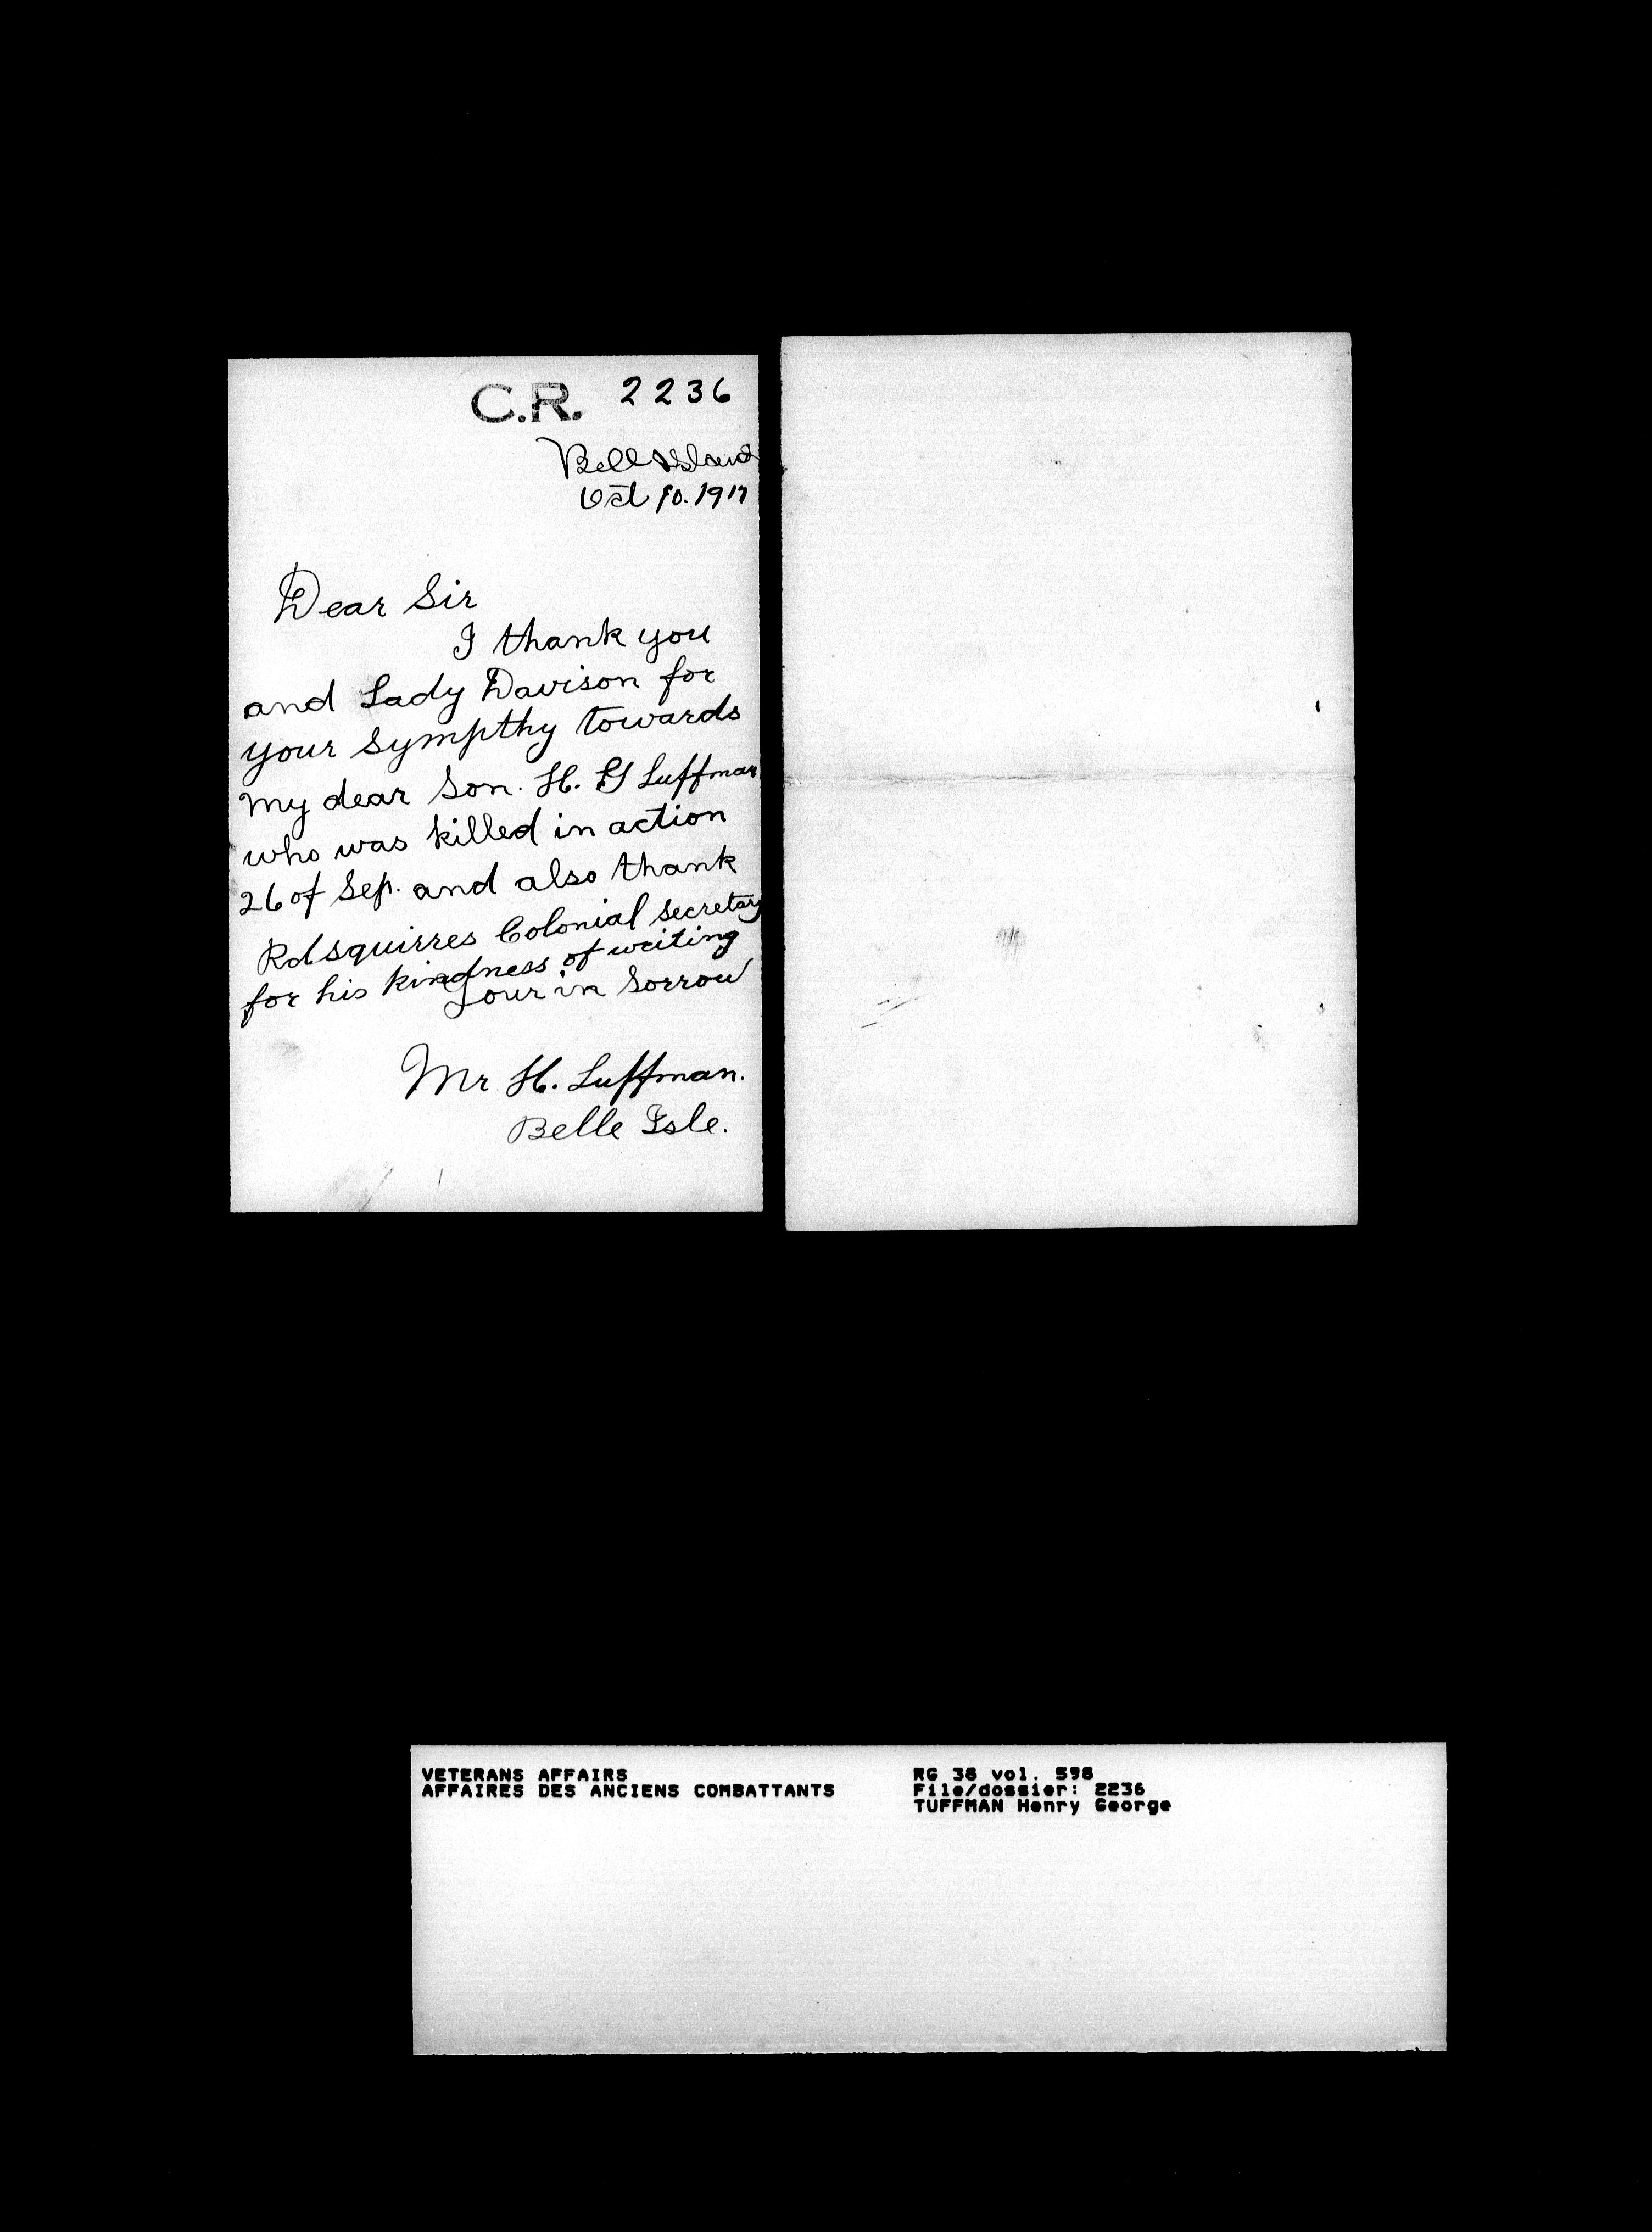 C.R. 2236
Bell Island
Oct 10. 1917
Dear Sir
I thank you
and Lady Davison for
your Sympthy towards
my dear Son. H. G Luffman
who was killed in action
26 of Sep. and also thank
Rdsquirres Colonial secretary
for his kindness of writing
Your in Sorrow
Mr H. Luffman.
Belle Isle.
VETERANS AFFAIRS
AFFAIRES DES ANCIENS COMBATTANTS
RG 38 vol. 598
File/dossier: 2236
TUFFMAN Henry George